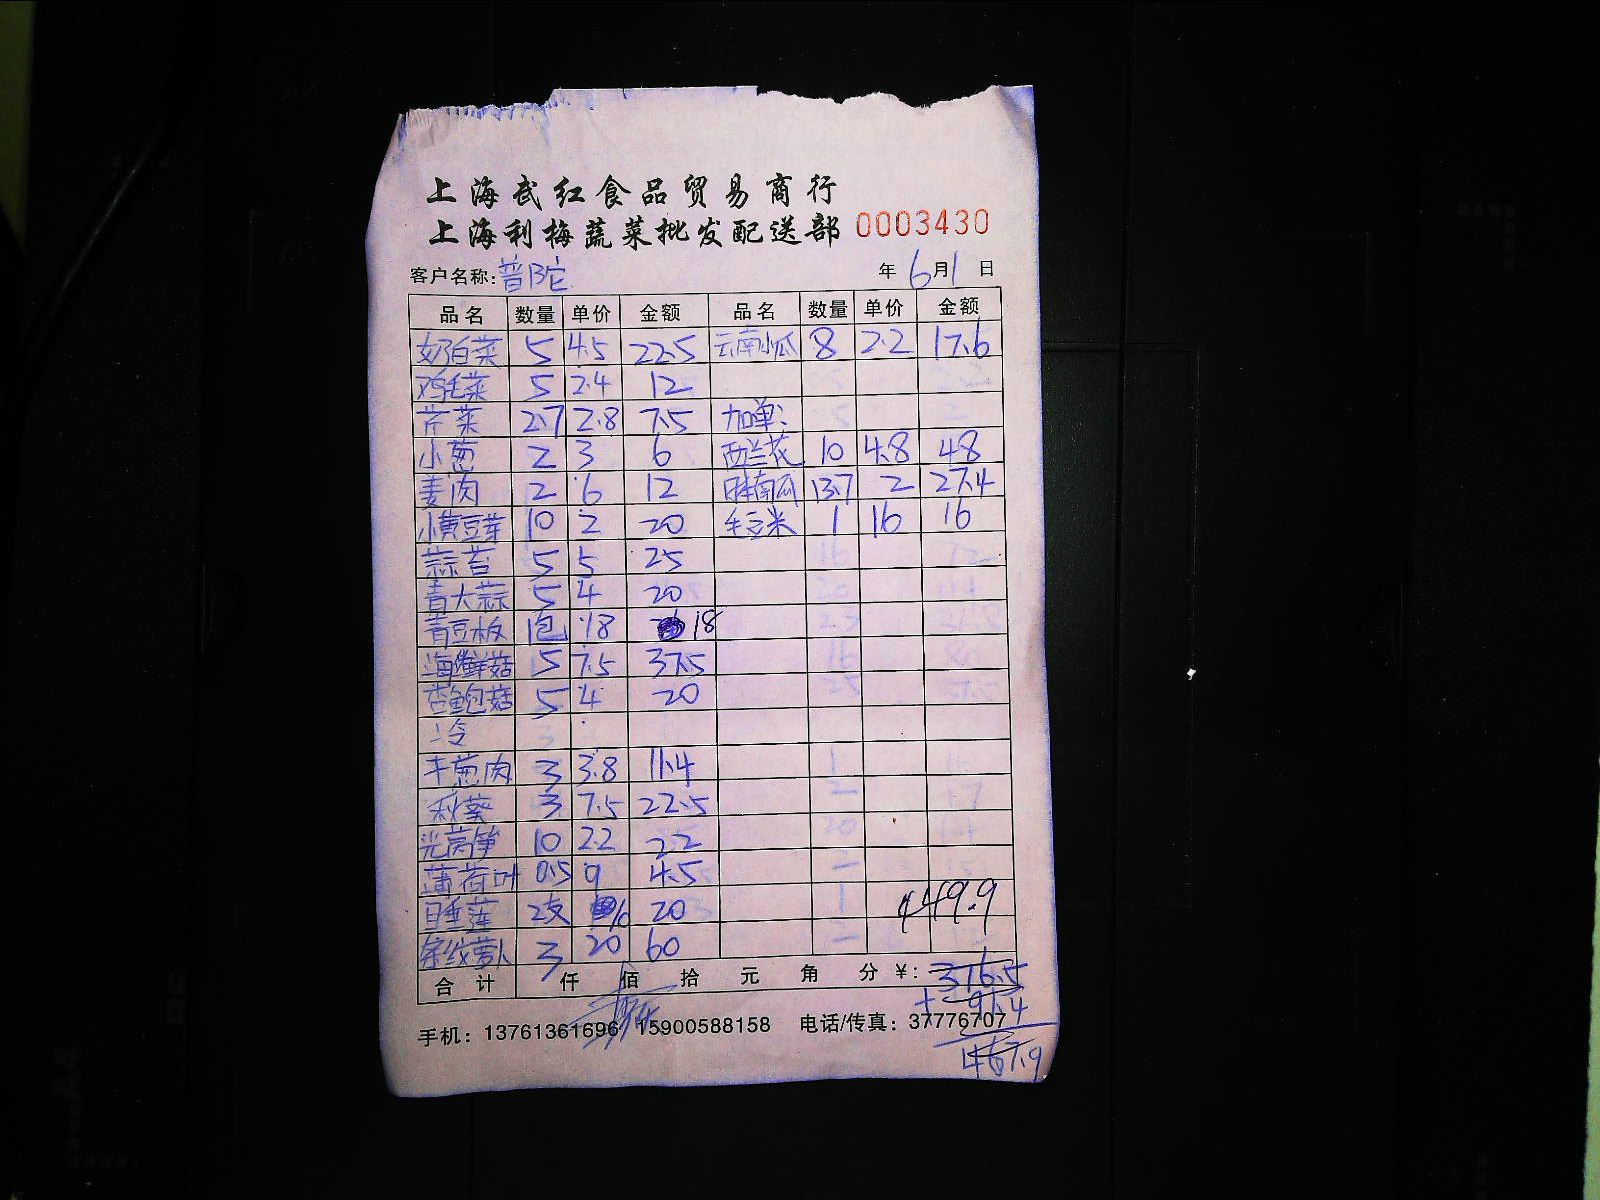 上海武红食品贸易商行
上海利梅蔬菜批发配送部 0003430
客户名称:普陀 年 6月1日
品名 数量 单价 金额 品名 数量 单价 金额
奶白菜 5 4.5 22.5 云南小瓜 8 2.2 17.6
鸡毛菜 5 2.4 12
芹菜 2.7 2.8 7.5 加单:
小葱 2 3 6 西兰花 10 4.8 48
姜肉 2 6 12 日本南瓜 13.7 2 27.4
小黄豆芽 10 2 20 毛豆米 1 16 16
蒜苔 5 5 25
青大蒜 5 4 20
青豆板 1包 18 18
海鲜菇 5 7.5 37.5
杏鲍菇 5 4 20
冷
羊葱肉 3 3.8 11.4
秋葵 3 7.5 22.5
光莴笋 10 2.2 22
薄荷叶 0.5 9 4.5
日垂莲 2支 10 20 449.9
条纹萝卜 3 20 60
合计 仟 佰 拾 元 角 分 ¥: 376.5
+ 91.4
手机: 13761361696 15900588158 电话/传真: 37776707
467.9